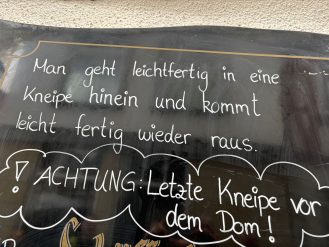 Man geht leichtfertig in eine
Kneipe hinein und kommt
leicht fertig wieder raus.
! ACHTUNG: Letzte Kneipe vor
dem Dom!